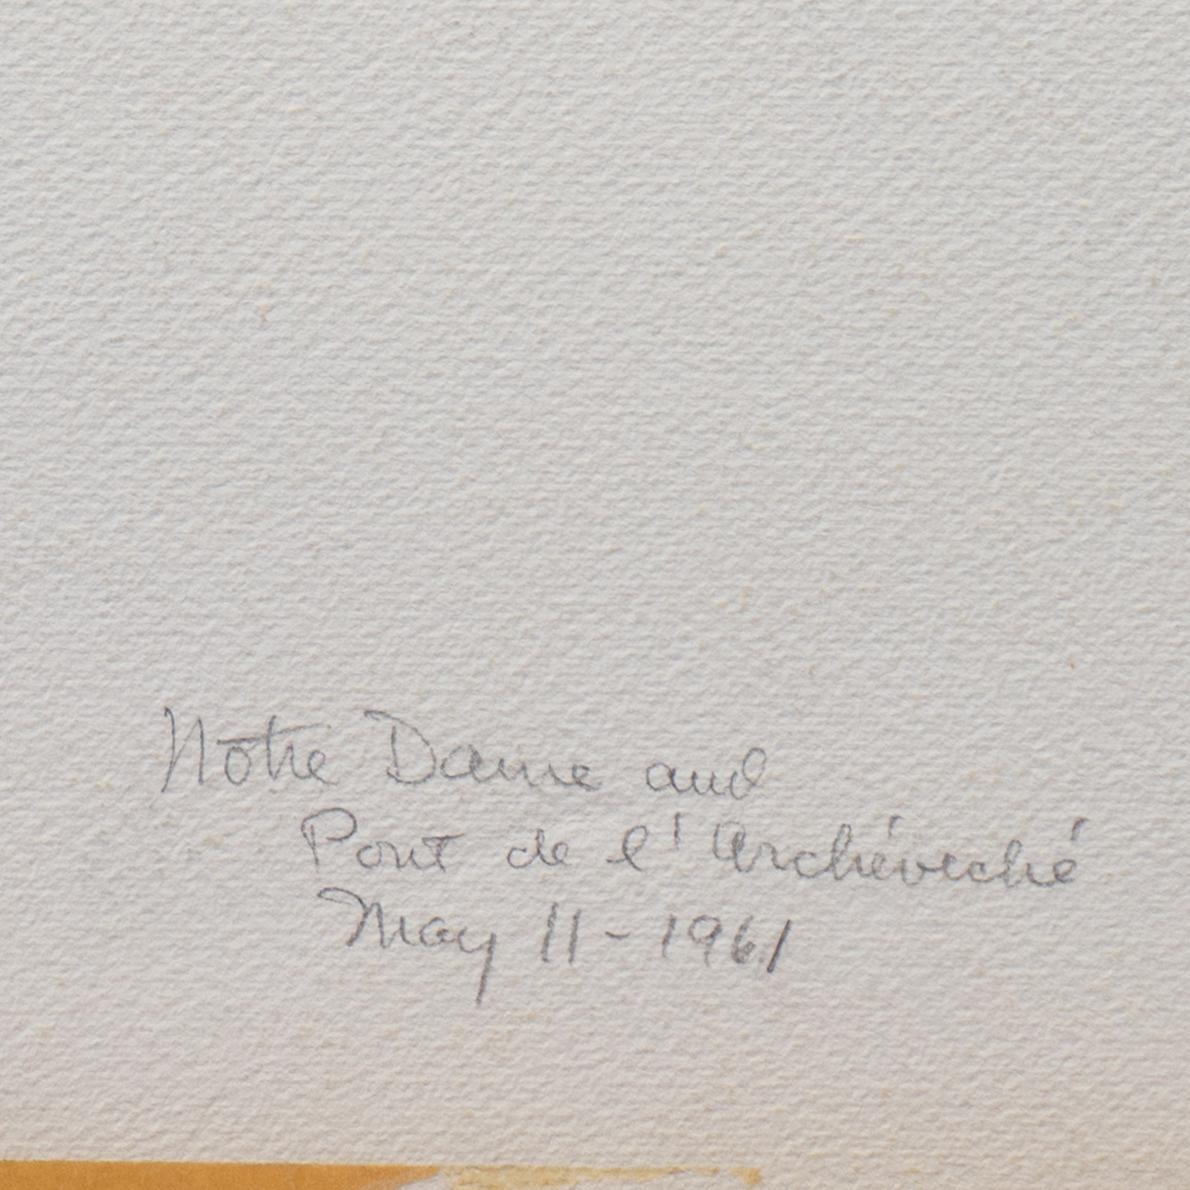 Notre Dame and
Pont de l'Archéveché
May 11-1961